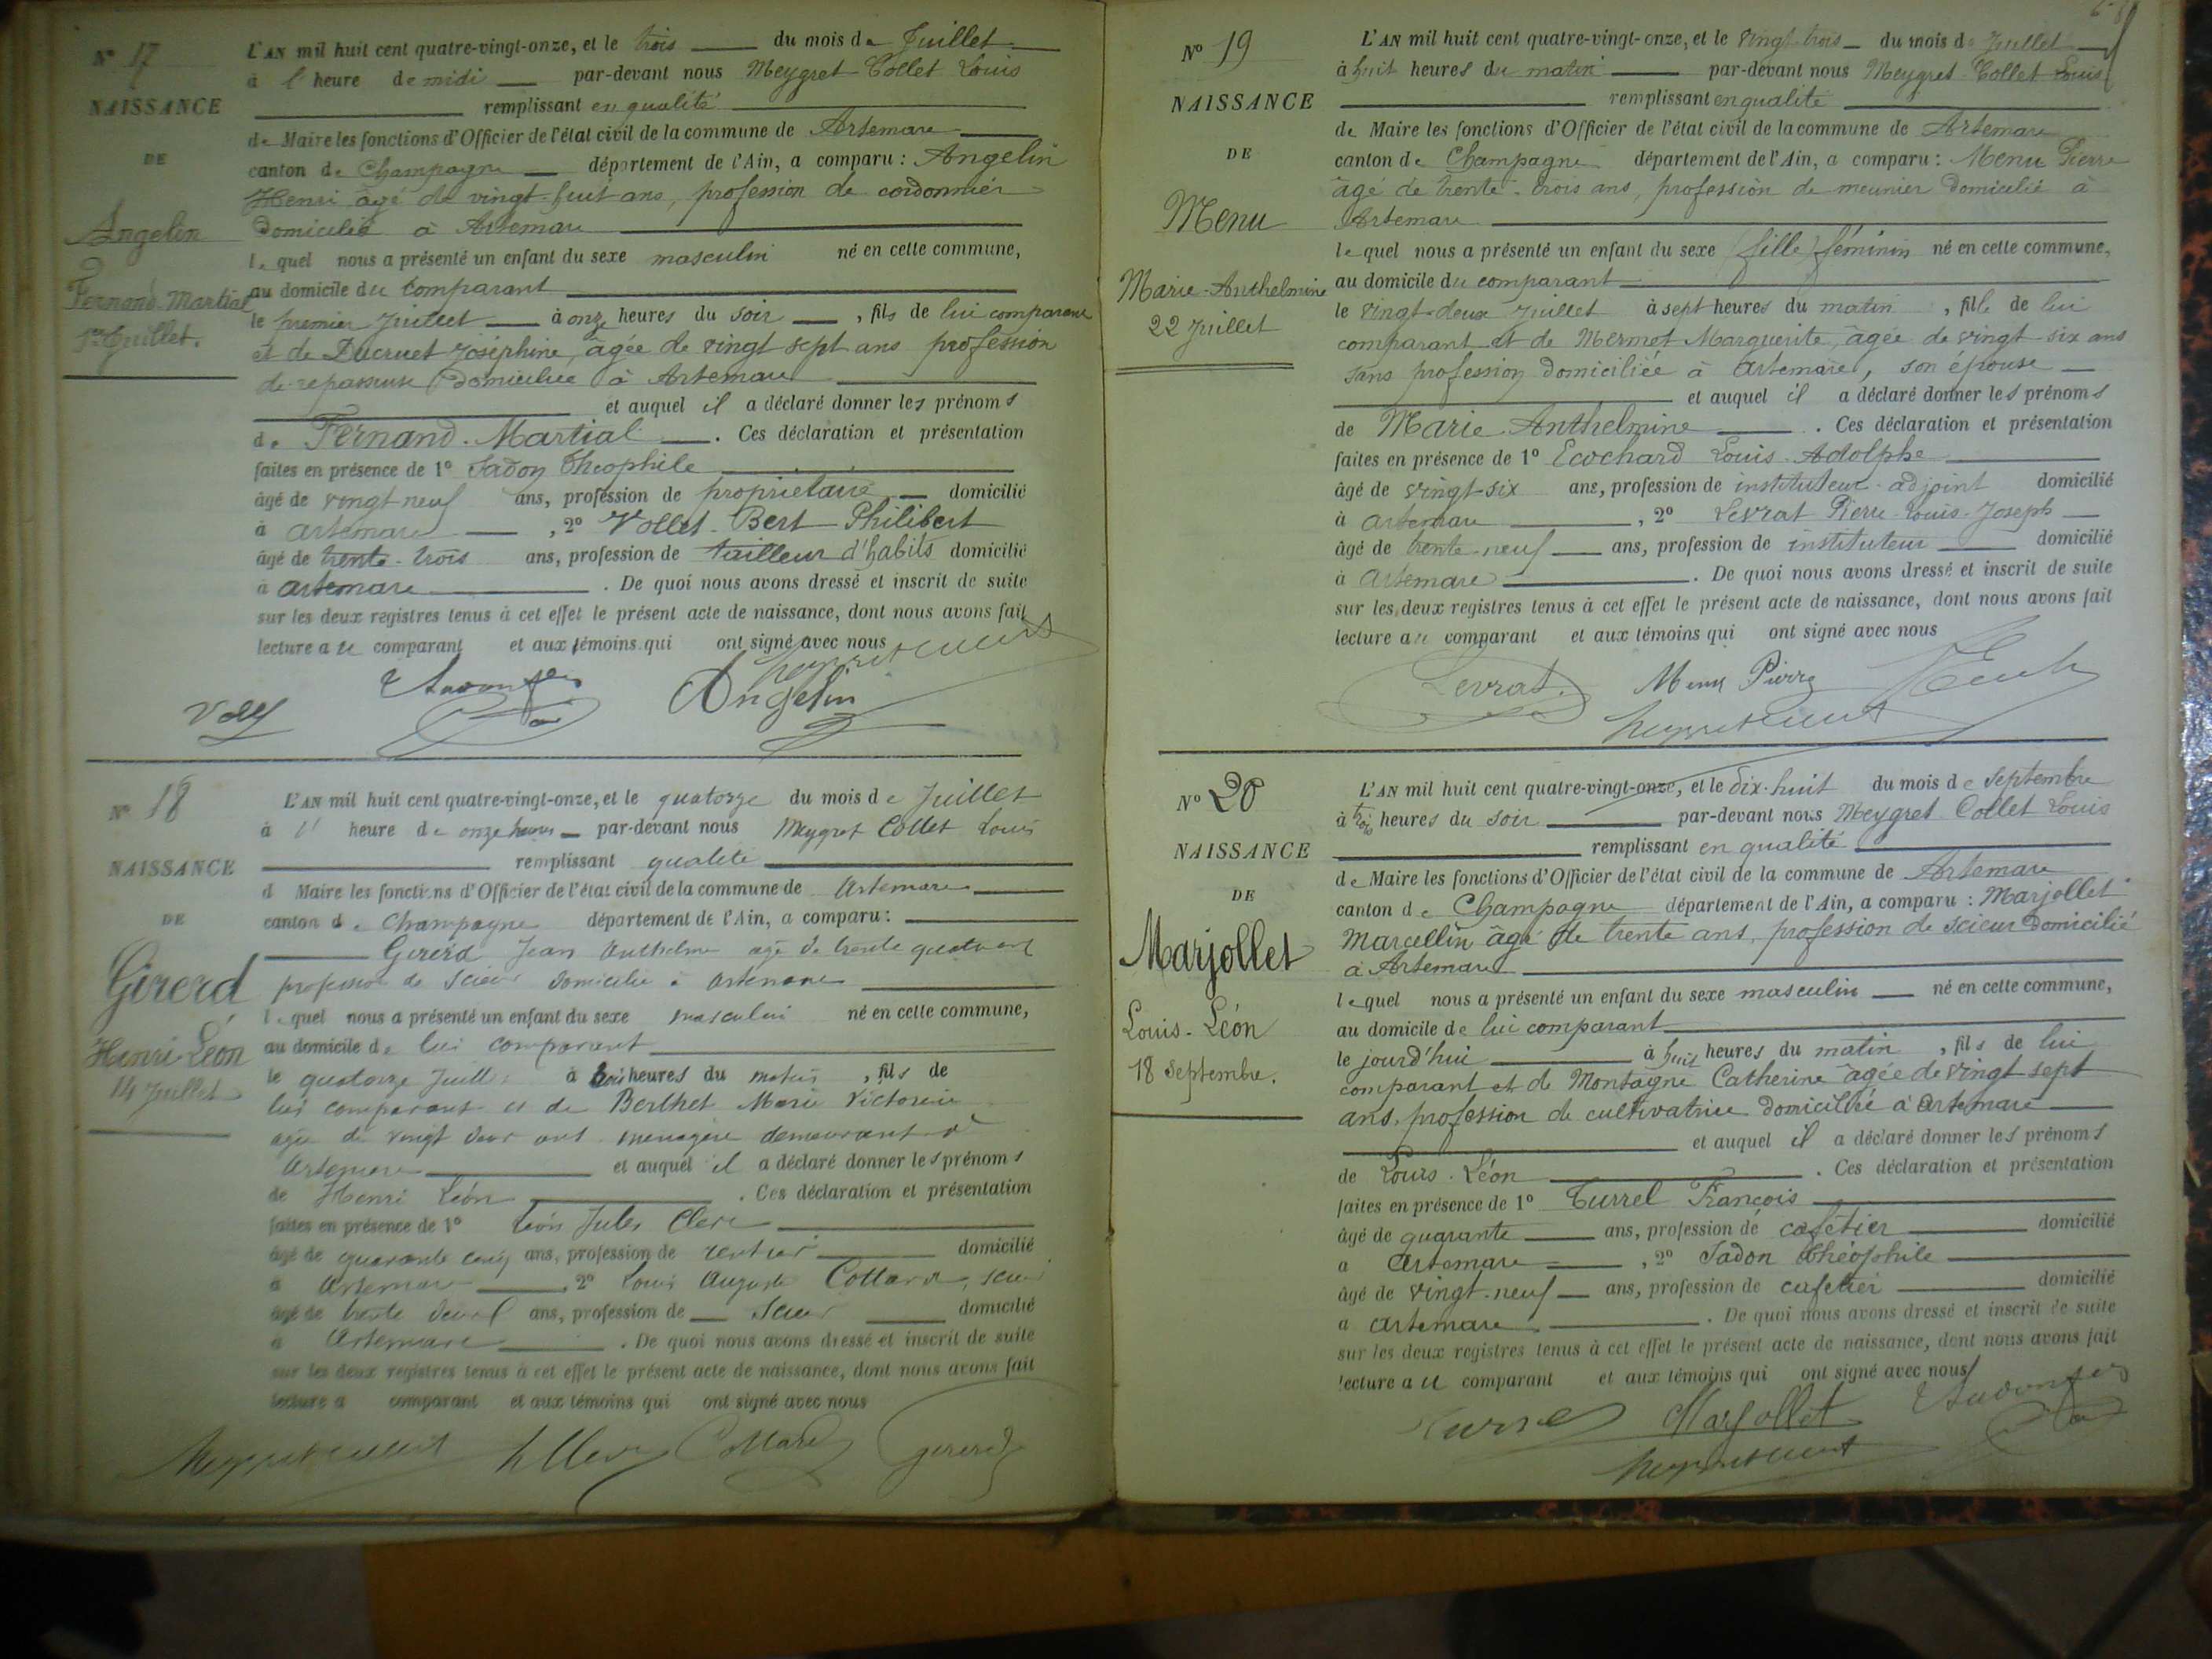 Nº 17
NAISSANCE
DE
Angelin
Fernand-Martial
1er Juillet.
L'AN mil huit cent quatre-vingt-onze, et le trois du mois de Juillet
à l'heure de midi par-devant nous Meygret-Collet Louis
remplissant en qualité
de Maire les fonctions d'Officier de l'état civil de la commune de Artemare
canton de Champagne département de l'Ain, a comparu : Angelin
Henri âgé de vingt-huit ans, profession de cordonnier
domicilié à Artemare
lequel nous a présenté un enfant du sexe masculin né en cette commune,
au domicile du comparant
le premier Juillet à onze heures du soir, fils de lui comparant
et de Ducruet Joséphine, âgée de vingt sept ans profession
de repasseuse domiciliée à Artemare
et auquel il a déclaré donner les prénoms
de Fernand-Martial. Ces déclaration et présentation
faites en présence de 1º Sadon Théophile
âgé de vingt neuf ans, profession de propriétaire domicilié
à Artemare, 2º Vollet-Bert Philibert
âgé de trente-trois ans, profession de tailleur d'habits domicilié
à Artemare. De quoi nous avons dressé et inscrit de suite
sur les deux registres tenus à cet effet le présent acte de naissance, dont nous avons fait
lecture au comparant et aux témoins qui ont signé avec nous
Angelin
Nº 18
NAISSANCE
DE
Girerd
Henri-Léon
14 Juillet
L'AN mil huit cent quatre-vingt-onze, et le quatorze du mois de Juillet
à l'heure de onze heures par-devant nous Meygret Collet Louis
remplissant qualité
d Maire les fonctions d'Officier de l'état civil de la commune de Artemare
canton de Champagne département de l'Ain, a comparu :
Girerd Jean Anthelme âgé de trente quatre ans
profession de scieur domicilié à Artemare
lequel nous a présenté un enfant du sexe masculin né en cette commune,
au domicile de lui comparant
le quatorze Juillet à trois heures du matin, fils de
lui comparant et de Berthet Marie Victorine
âgée de vingt deux ans ménagère demeurant à
Artemare et auquel il a déclaré donner les prénoms
de Henri Léon. Ces déclaration et présentation
faites en présence de 1º Léon Jules Clerc
âgé de quarante cinq ans, profession de rentier domicilié
à Artemare, 2º Louis Auguste Cottard, scieur
âgé de trente ans, profession de scieur domicilié
à Artemare. De quoi nous avons dressé et inscrit de suite
sur les deux registres tenus à cet effet le présent acte de naissance, dont nous avons fait
lecture a comparant et aux témoins qui ont signé avec nous
Cottard Girerd
Nº 19
NAISSANCE
DE
Menu
Marie-Anthelmine
22 Juillet
L'AN mil huit cent quatre-vingt-onze, et le vingt-trois du mois de Juillet
à huit heures du matin par-devant nous Meygret-Collet Louis
remplissant en qualité
de Maire les fonctions d'Officier de l'état civil de la commune de Artemare
canton de Champagne département de l'Ain, a comparu : Menu Pierre
âgé de trente-trois ans, profession de meunier domicilié à
Artemare
lequel nous a présenté un enfant du sexe (fille) féminin né en cette commune,
au domicile du comparant
le vingt-deux Juillet à sept heures du matin, fille de lui
comparant et de Mermet Marguerite, âgée de vingt-six ans
sans profession domiciliée à Artemare, son épouse
et auquel il a déclaré donner les prénoms
de Marie-Anthelmine. Ces déclaration et présentation
faites en présence de 1º Ecochard Louis-Adolphe
âgé de vingt-six ans, profession de instituteur-adjoint domicilié
à Artemare, 2º Levrat Pierre-Louis-Joseph
âgé de trente-neuf ans, profession de instituteur domicilié
à Artemare. De quoi nous avons dressé et inscrit de suite
sur les deux registres tenus à cet effet le présent acte de naissance, dont nous avons fait
lecture au comparant et aux témoins qui ont signé avec nous
Levrat. Menu Pierre
Nº 20
NAISSANCE
DE
Marjollet
Louis-Léon
18 Septembre.
L'AN mil huit cent quatre-vingt-onze, et le dix-huit du mois de Septembre
à trois heures du soir par-devant nous Meygret-Collet Louis
remplissant en qualité
de Maire les fonctions d'Officier de l'état civil de la commune de Artemare
canton de Champagne département de l'Ain, a comparu : Marjollet
Marcellin âgé de trente ans, profession de scieur domicilié
à Artemare
lequel nous a présenté un enfant du sexe masculin né en cette commune,
au domicile de lui comparant
le jourd'hui à huit heures du matin, fils de lui
comparant et de Montagne Catherine âgée de vingt sept
ans, profession de cultivatrice domiciliée à Artemare
et auquel il a déclaré donner les prénoms
de Louis-Léon. Ces déclaration et présentation
faites en présence de 1º Turrel François
âgé de quarante ans, profession de cafetier domicilié
à Artemare, 2º Sadon Théophile
âgé de vingt-neuf ans, profession de cafetier domicilié
à Artemare. De quoi nous avons dressé et inscrit de suite
sur les deux registres tenus à cet effet le présent acte de naissance, dont nous avons fait
lecture au comparant et aux témoins qui ont signé avec nous
Marjollet